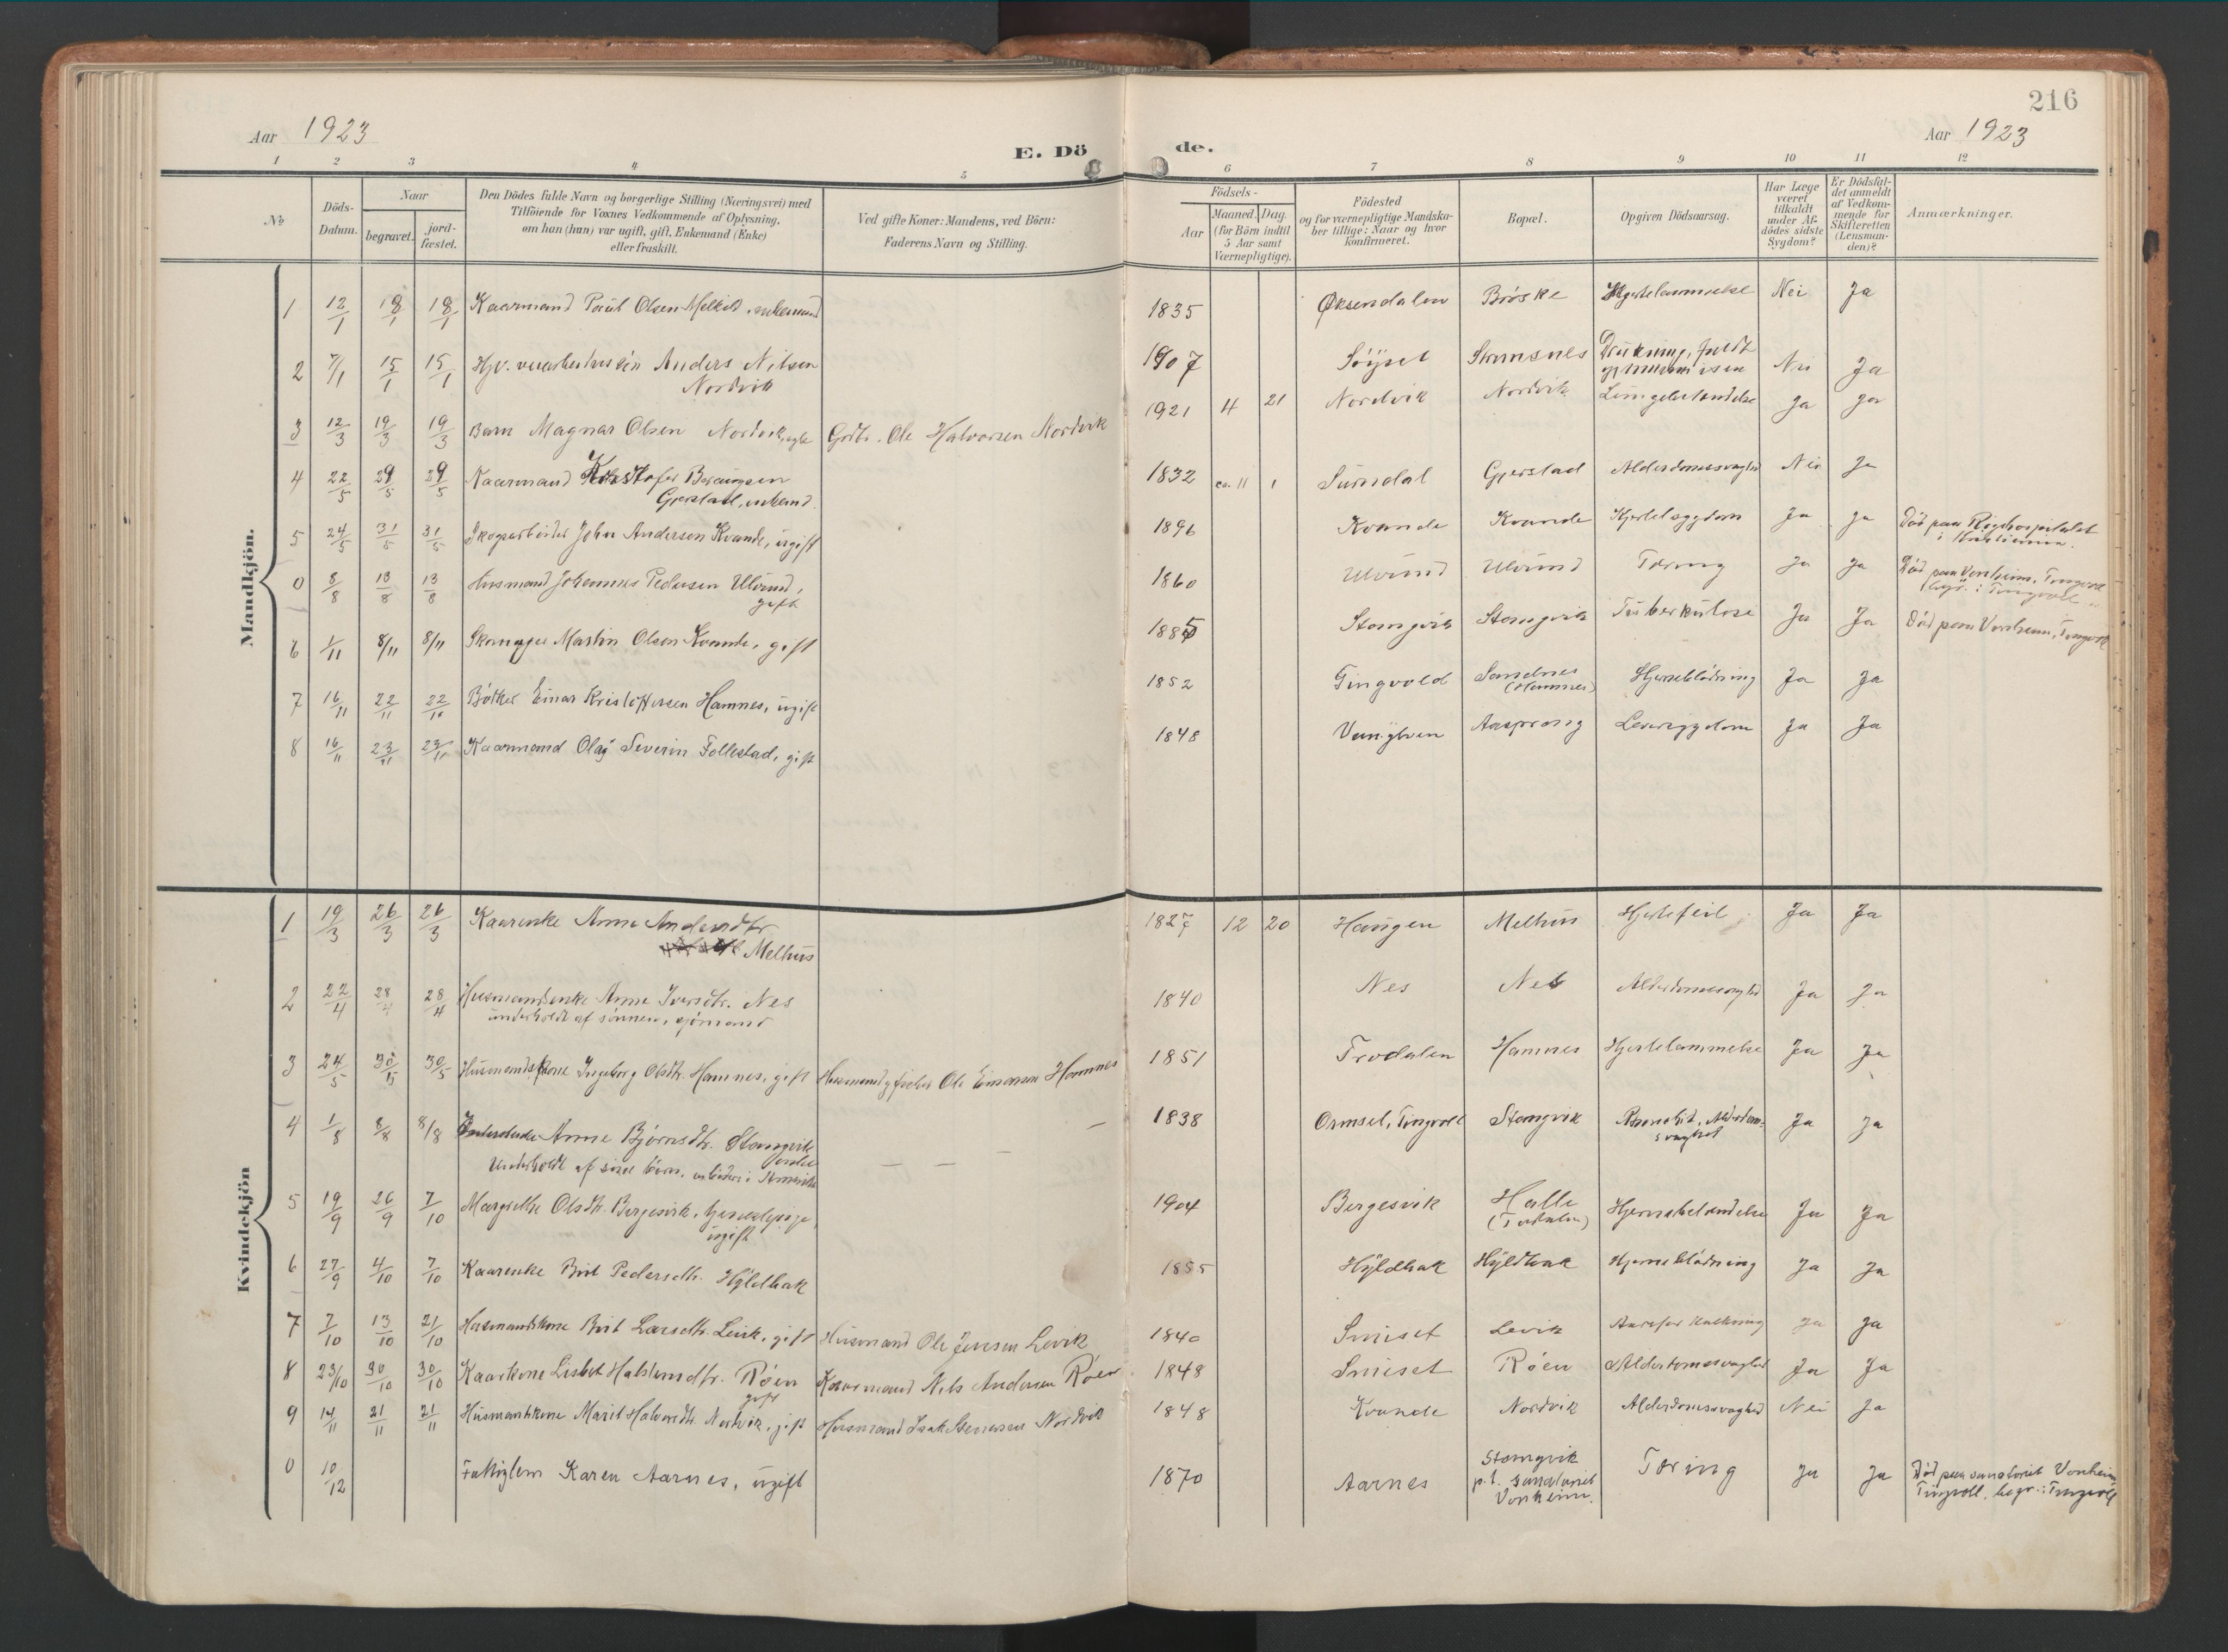 216
Aar 1923
E. Döde.
Aar 1923
1 2 3 4 5 6 7 8 9 10 11 12
No
Döds-Datum.
Naar
begravet.
jord-fæstet.
Den Dödes fulde Navn og borgerlige Stilling (Næringsvei) med
Tilföiende for Voxnes Vedkommende af Oplysning,
om han (hun) var ugift, gift, Enkemand (Enke)
eller fraskilt.
Ved gifte Koner: Mandens, ved Börn:
Faderens Navn og Stilling.
Födsels-
Aar
Maaned. Dag.
(for Börn indtil
5 Aar samt
Værnepligtige).
Födested
og for værnepligtige Mandska-
ber tillige: Naar og hvor
konfirmeret.
Bopæl.
Opgiven Dödsaarsag.
Har Læge
været
tilkaldt
under Af-
dödes sidste
Sygdom?
Er Dödsfal-
det anmeldt
af Vedkom-
mende for
Skifteretten
(Lensman-
den)?
Anmærkninger.
Mandkjön.
1 12/1 18/1 18/1 Kaarmand Poul Olsen Melhus, enkemand 1835 Øksendalen Bøske Hjertelammelse Nei Ja
2 7/1 15/1 15/1 Anders Nilsen 1907 Söyset Strømsnes Drukning, faldt Nei Ja
Nordvik gjennem isen
3 12/3 19/3 19/3 Barn Magnar Olsen Nordvik, egte Grdbr. Ole Halvorsen Nordvik 1921 4 21 Nordvik Nordvik Lungebetændelse Ja Ja
4 22/5 29/5 29/5 Kaarmand Kristofer 1832 ca. 11 1 Surndal Gjerstad Alderdomssvaghed Nei Ja
Gjerstad, enkemd.
5 24/5 31/5 31/5 Skogsarbeider John Andersen Kvande, ugift 1896 Kvande Kvande Hjertesygdom Ja Ja Död paa Rigshospitalet
i Kristiania.
0 8/8 13/8 13/8 Husmand Johannes Pedersen Ulvund, 1860 Ulvund Ulvund Tæring Ja Ja Död paa Vonheim, Tingvoll
gift begr. i Tingvoll
6 1/11 8/11 8/11 Skomager Martin Olsen Kvande, gift 1885 Stangvik Stangvik Tuberkulose Ja Ja Död paa Vonheim, Tingvoll
7 16/11 22/11 22/11 Bötker Einar Kristoffersen Hamnes, ugift 1852 Tingvold Sandnes Hjerneblödning Ja Ja
(Hamnes)
8 16/11 23/11 23/11 Kaarmand Olaf Severin Follestad, gift 1848 Vanylven Aasprong Leversygdom Ja Ja
Kvindekjön
1 19/3 26/3 26/3 Kaarenke Anne Andersdtr. 1827 12 20 Haugen Melhus Hjertefeil Ja Ja
Melhus
2 22/4 28/4 28/4 Husmandsenke Anne Iversdtr. Nes 1840 Nes Nes Alderdomssvaghed Ja Ja
underholdt af sönnen, sjömand
3 24/5 30/5 30/5 Husmandskone Ingeborg Olsdtr. Hamnes, gift Husmand, fisker Ole Einarsen Hamnes 1851 Trodalen Hamnes Hjertelammelse Ja Ja
4 1/8 8/8 8/8 Anne Björnsdtr. Stangvik — — — — 1838 Ormset, Tingvoll Stangvik Alderdoms- Ja Ja
enke svaghet
Underholdt af sine börn, arbeidere i Amerika
5 19/9 26/9 7/10 Margrethe Olsdtr. Bergesvik, tjenestepige, 1904 Bergesvik Halle Hjernebetændelse Ja Ja
ugift (Todalen)
6 27/9 4/10 7/10 Kaarenke Brit Pedersdtr. Hyldbak 1855 Hyldbak Hyldbak Hjerneblödning Ja Ja
7 7/10 13/10 21/10 Husmandskone Brit Larsdtr. Levik, gift Husmand Ole Jensen Levik 1840 Settemsdal Levik Aareforkalkning Ja Ja
8 23/10 30/10 30/10 Kaarkone Lisbet Halstensdtr. Röen Kaarmand Nils Andersen Röen 1848 Röen Alderdomssvaghed Ja Ja
gift
9 14/11 21/11 21/11 Husmandskone Marit Halvorsdtr. Nordvik, gift Husmand Isak Nordvik 1848 Kvande Nordvik Alderdomssvaghed Nei Ja
0 10/12 Fattiglem Karen Aarnes, ugift 1870 Aarnes Stangvik Tæring Ja Ja Död paa sanatoriet Vonheim
p.t. sanatoriet Tingvoll, begr. i Tingvoll
Vonheim.